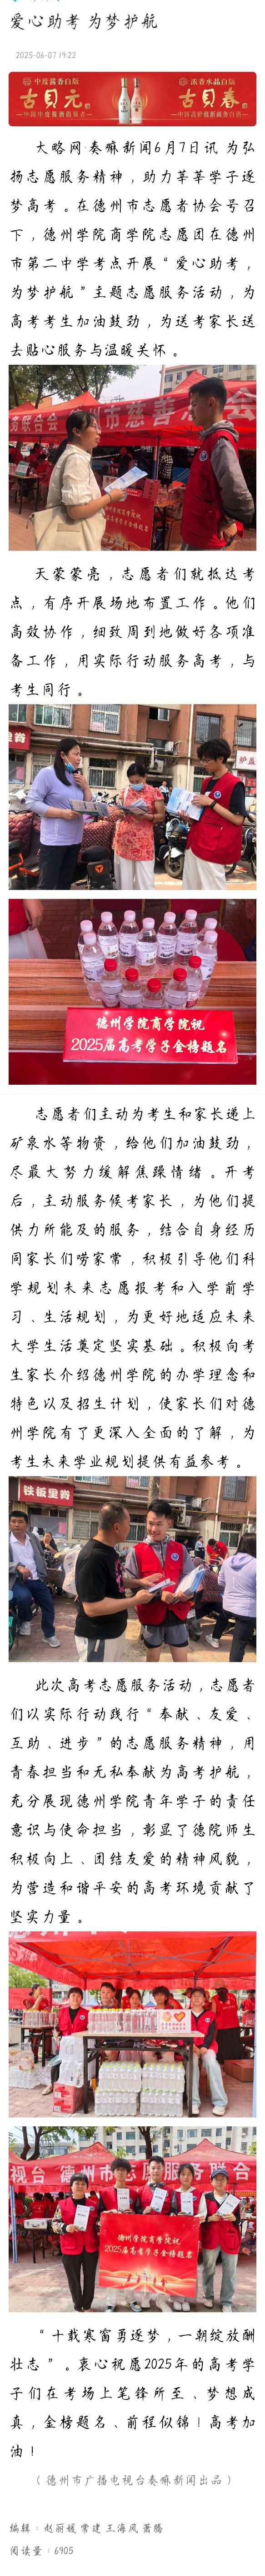 爱心助考 为梦护航
2025-06-07 19:22
中度酱香白版
古贝元
浓香水晶白版
古贝春
大略网·奏嘛新闻6月7日讯 为弘
扬志愿服务精神，助力莘莘学子逐
梦高考。在德州市志愿者协会号召
下，德州学院商学院志愿团在德州
市第二中学考点开展“爱心助考，
为梦护航”主题志愿服务活动，为
高考考生加油鼓劲，为送考家长送
去贴心服务与温暖关怀。
务联合会
德州市慈善总会
天蒙蒙亮，志愿者们就抵达考
点，有序开展场地布置工作。他们
高效协作，细致周到地做好各项准
备工作，用实际行动服务高考，与
考生同行。
里脊
德州学院商学院祝
2025届高考学子金榜题名
志愿者们主动为考生和家长递上
矿泉水等物资，给他们加油鼓劲，
尽最大努力缓解焦躁情绪。开考
后，主动服务候考家长，为他们提
供力所能及的服务，结合自身经历
同家长们唠家常，积极引导他们科
学规划未来志愿报考和入学前学
习、生活规划，为更好地适应未来
大学生活奠定坚实基础。积极向考
生家长介绍德州学院的办学理念和
特色以及招生计划，使家长们对德
州学院有了更深入全面的了解，为
考生未来学业规划提供有益参考。
铁板里脊
此次高考志愿服务活动，志愿者
们以实际行动践行“奉献、友爱、
互助、进步”的志愿服务精神，用
青春担当和无私奉献为高考护航，
充分展现德州学院青年学子的责任
意识与使命担当，彰显了德院师生
积极向上、团结友爱的精神风貌，
为营造和谐平安的高考环境贡献了
坚实力量。
视台 德州市志愿服务联合
德州学院商学院祝
2025届高考学子金榜题名
“十载寒窗勇逐梦，一朝绽放酬
壮志”。衷心祝愿2025年的高考学
子们在考场上笔锋所至、梦想成
真，金榜题名、前程似锦！高考加
油！
（德州市广播电视台奏嘛新闻出品）
编辑：赵丽媛 常建 王海凤 萧腾
阅读量：6905